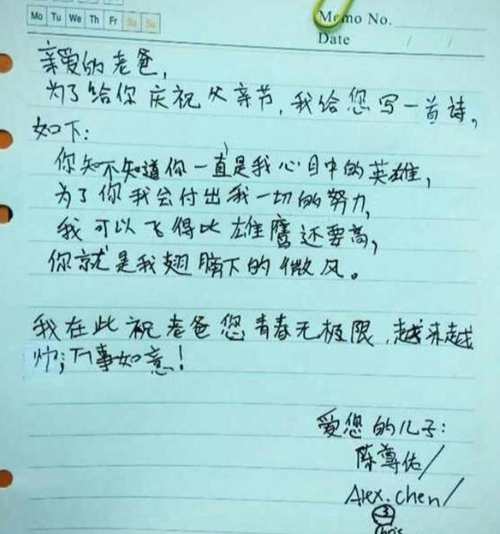 Mo Tu We Th Fr Sa Su
Memo No.
Date / /
亲爱的老爸,
为了给你庆祝父亲节,我给您写一首诗,
如下:
你知不知道你一直是我心目中的英雄,
为了你我会付出我一切的努力,
我可以飞得比雄鹰还要高,
你就是我翅膀下的微风。
我在此祝老爸您青春无极限,越来越
帅;万事如意!
爱您的儿子:
陈尊佑/
Alex.chen/
Chris